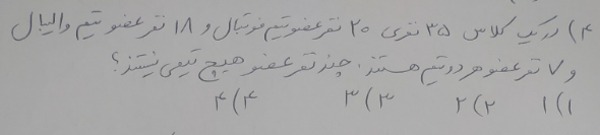 ۴) در یک کلاس ۳۵ نفری ۲۰ نفر عضو تیم فوتبال و ۱۸ نفر عضو تیم والیبال
و ۷ نفر عضو هر دو تیم هستند. چند نفر عضو هیچ تیمی نیستند؟
۱) ۱ ۲) ۲ ۳) ۳ ۴) ۴